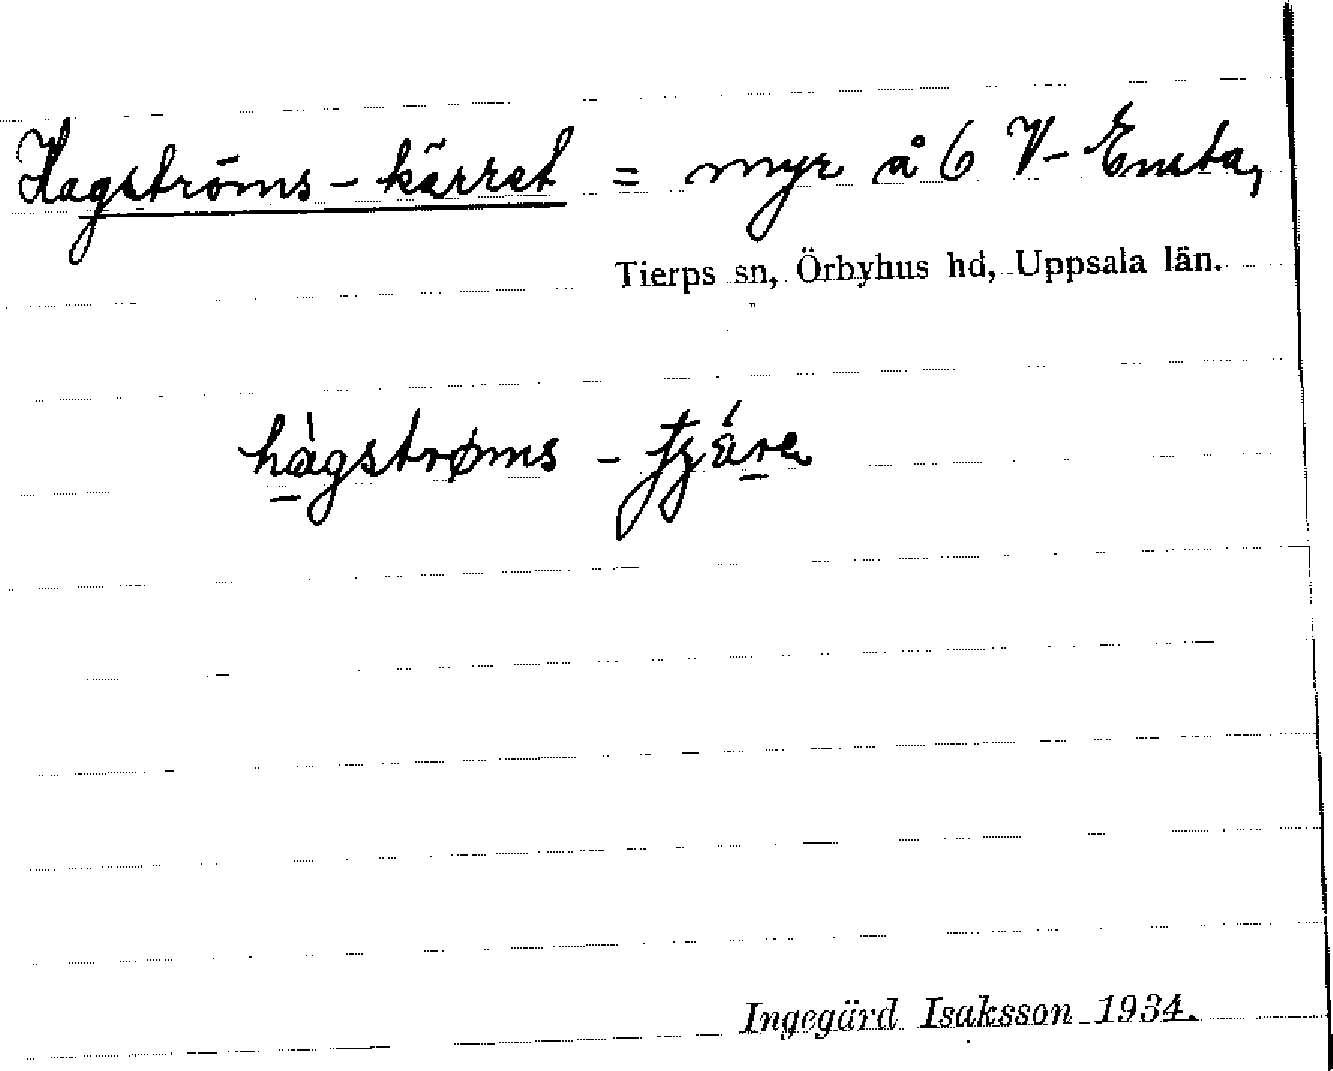 Hagströms-kärret = myr å 6 V-Ensta,
Tierps sn, Örbyhus hd, Uppsala län.
hàgstrøms - tjä́ra
Ingegärd Isaksson 1934.